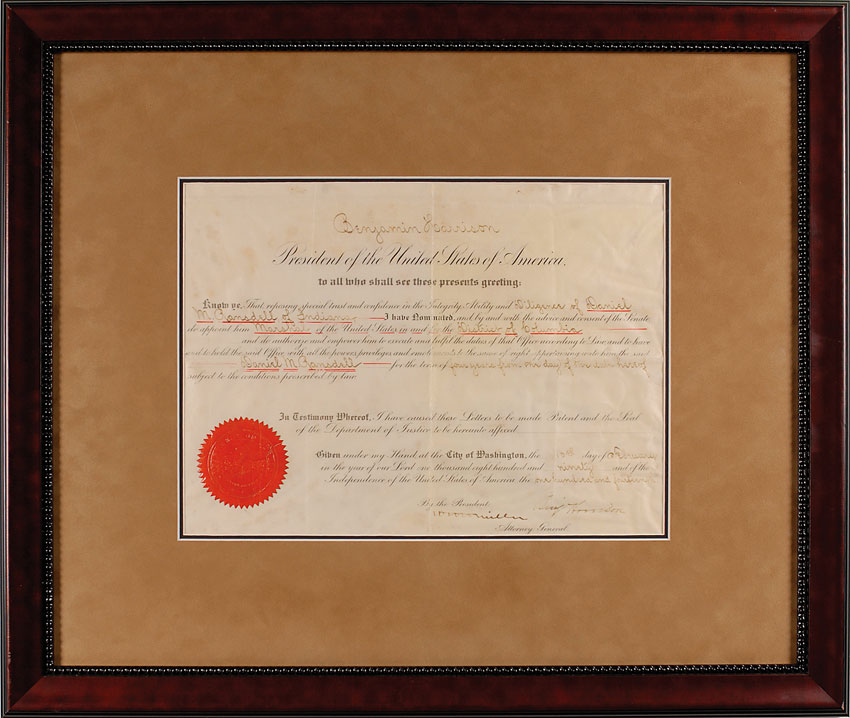 Benjamin Harrison
President of the United States of America,
to all who shall see these presents greeting:
Know ye, That reposing special trust and confidence in the Integrity Ability and Diligence of Daniel
M. Ramsdell of Indiana I have Nominated, and by and with the advice and consent of the Senate
do appoint him Marshal of the United States in and the District of Columbia
and do authorize and empower him to execute and fulfil the duties of that Office according to Law and to have
and to hold the said Office, with all the powers, privileges and emoluments to the same of right appertaining unto him the said
Daniel M. Ramsdell for the term of four years from the day of the date hereof
subject to the conditions prescribed by law
In Testimony Whereof, I have caused these Letters to be made Patent and the Seal
of the Department of Justice to be hereunto affixed.
Given under my Hand at the City of Washington, the day of February
in the year of our Lord one thousand eight hundred and ninety and of the
Independence of the United States of America the one hundred and
By the President,
Benj Harrison
Attorney General.